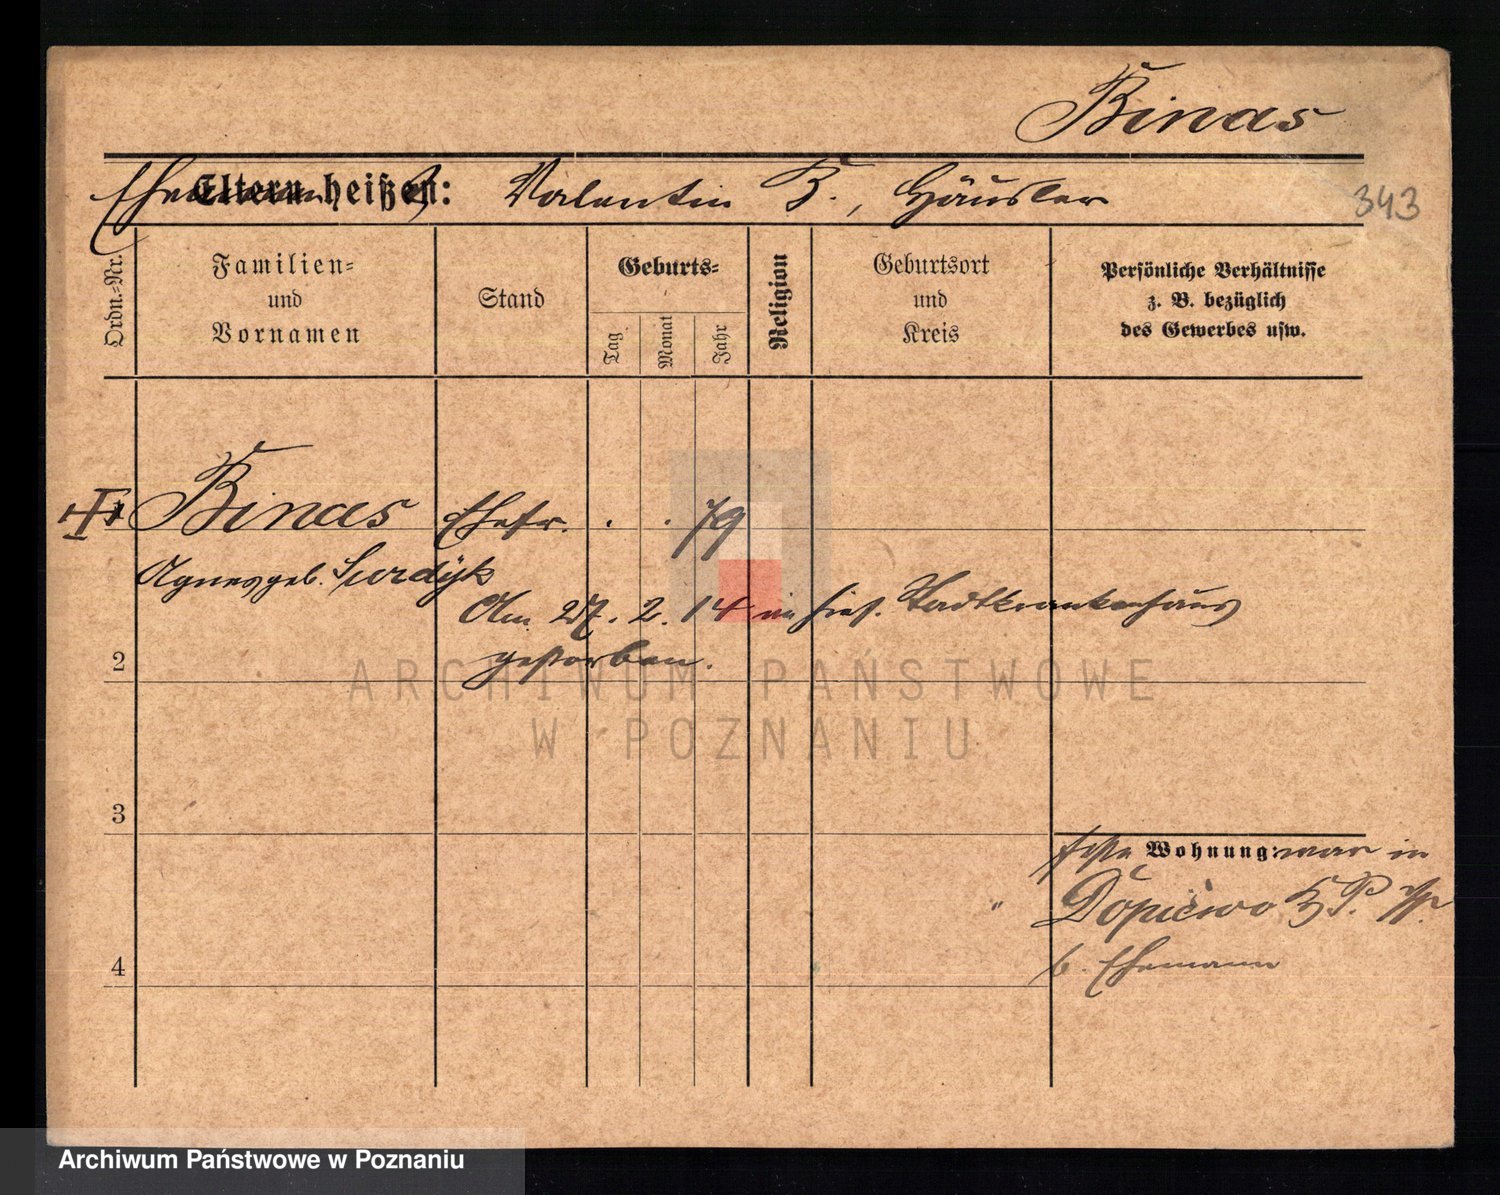 Binas
Eltern heißen: Valentin B., Häusler
343
Ordn.-Nr.
Familien-
und
Vornamen
Stand
Geburts-
Tag
Monat
Jahr
Religion
Geburtsort
und
Kreis
Persönliche Verhältnisse
z. B. bezüglich
des Gewerbes usw.
Binas Ehefr. . . 79
Agnes geb. Surdyk
Am 27. 2. 14 im hies. Stadtkrankenhaus
gestorben.
2
ARCHIWUM PAŃSTWOWE
W POZNANIU
3
feste Wohnung: war in
Dopiewo
b. Ehemann
4
Archiwum Państwowe w Poznaniu